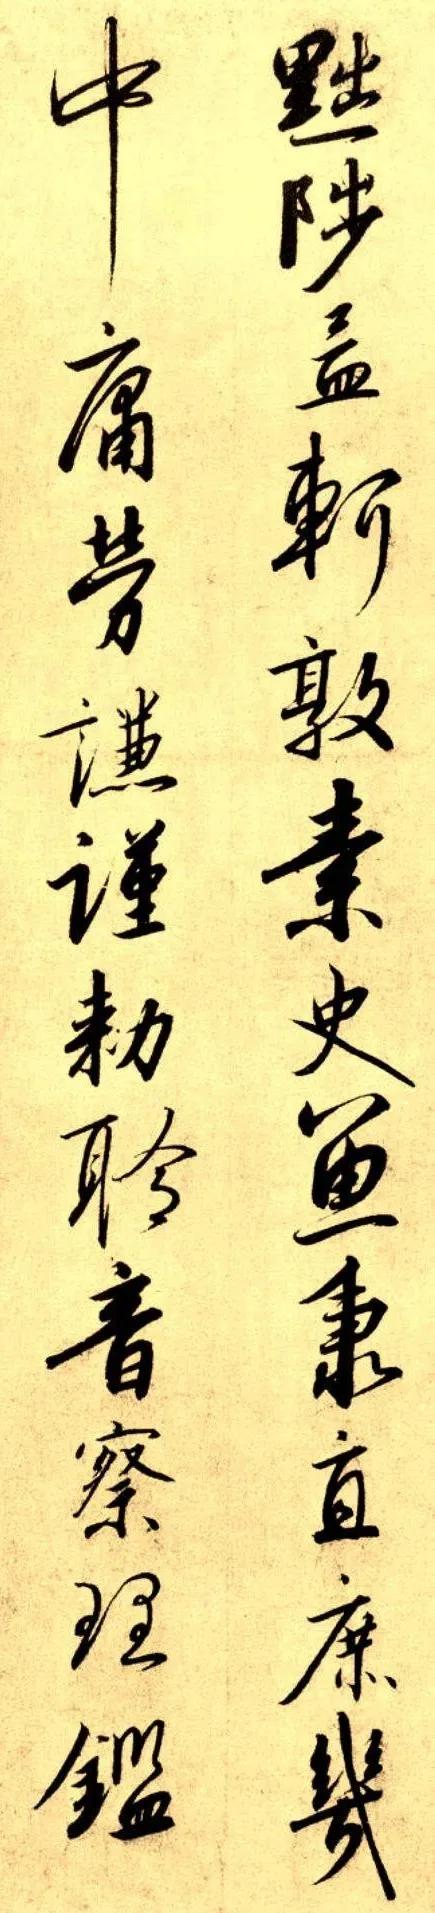 黜陟孟軻敦素史魚秉直庶幾
中庸勞謙謹勅聆音察理鑑